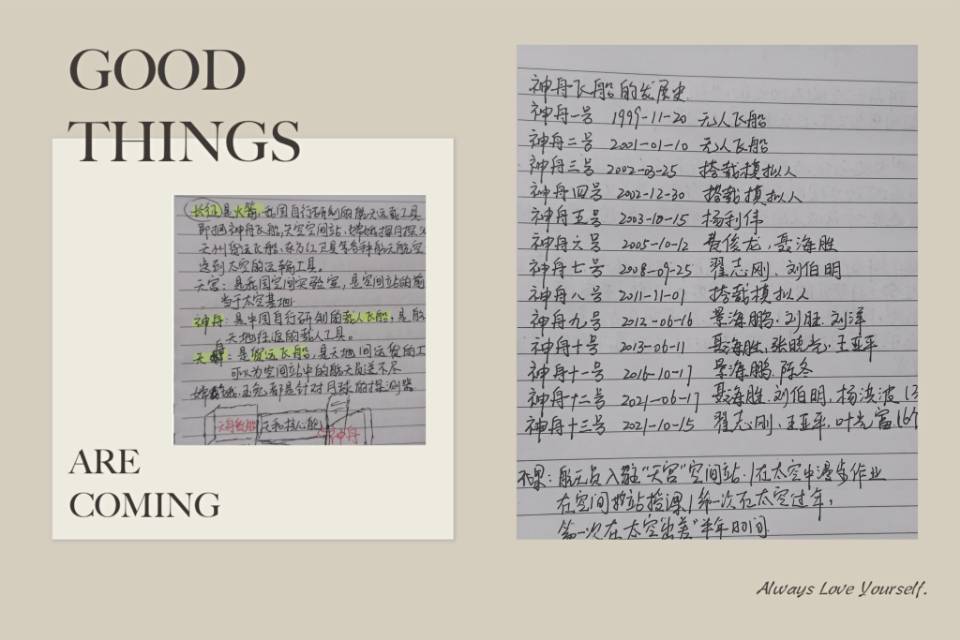 GOOD
THINGS
长征是火箭,我国自行研制的航天运载工具
即把神舟飞船,天宫空间站,嫦娥探月探
天舟货运飞船,东方红卫星等各种航天航空
送到太空的运输工具。
天宫:是我国空间实验室,是空间站的前
当于太空基地
神舟:是中国自行研制的载人飞船,是航
天地往返的载人工具。
天舟:是货运飞船,是天地间运货的工
可以为空间站中的航天员送
嫦娥 玉兔都是针对月球的探测器
天舟 天和核心舱 神舟
ARE
COMING
神舟飞船的发展史
神舟一号 1999-11-20 无人飞船
神舟二号 2001-01-10 无人飞船
神舟三号 2002-03-25 搭载模拟人
神舟四号 2002-12-30 搭载模拟人
神舟五号 2003-10-15 杨利伟
神舟六号 2005-10-12 费俊龙,聂海胜
神舟七号 2008-09-25 翟志刚、刘伯明
神舟八号 2011-11-01 搭载模拟人
神舟九号 2012-06-16 景海鹏、刘旺、刘洋
神舟十号 2013-06-11 聂海胜,张晓光、王亚平
神舟十一号 2016-10-17 景海鹏、陈冬
神舟十二号 2021-06-17 聂海胜、刘伯明,杨洪波
神舟十三号 2021-10-15 翟志刚、王亚平,叶光富
航天员入驻"天宫"空间站:/在太空中漫步作业
在空间站授课/第一次在太空过年,
第一次在太空出差"半年时间
Always Love Yourself.